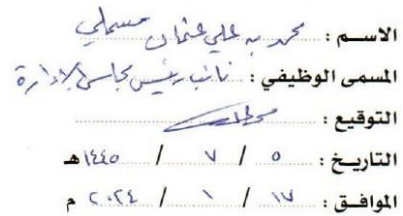 الاسم : محمد بن علي عثمان مسملي
المسمى الوظيفي : نائب رئيس مجلس الإدارة
التوقيع :
التاريخ : ٥ / ٧ / ١٤٤٥ هـ
الموافق : ١٧ / ١ / ٢٠٢٤ م